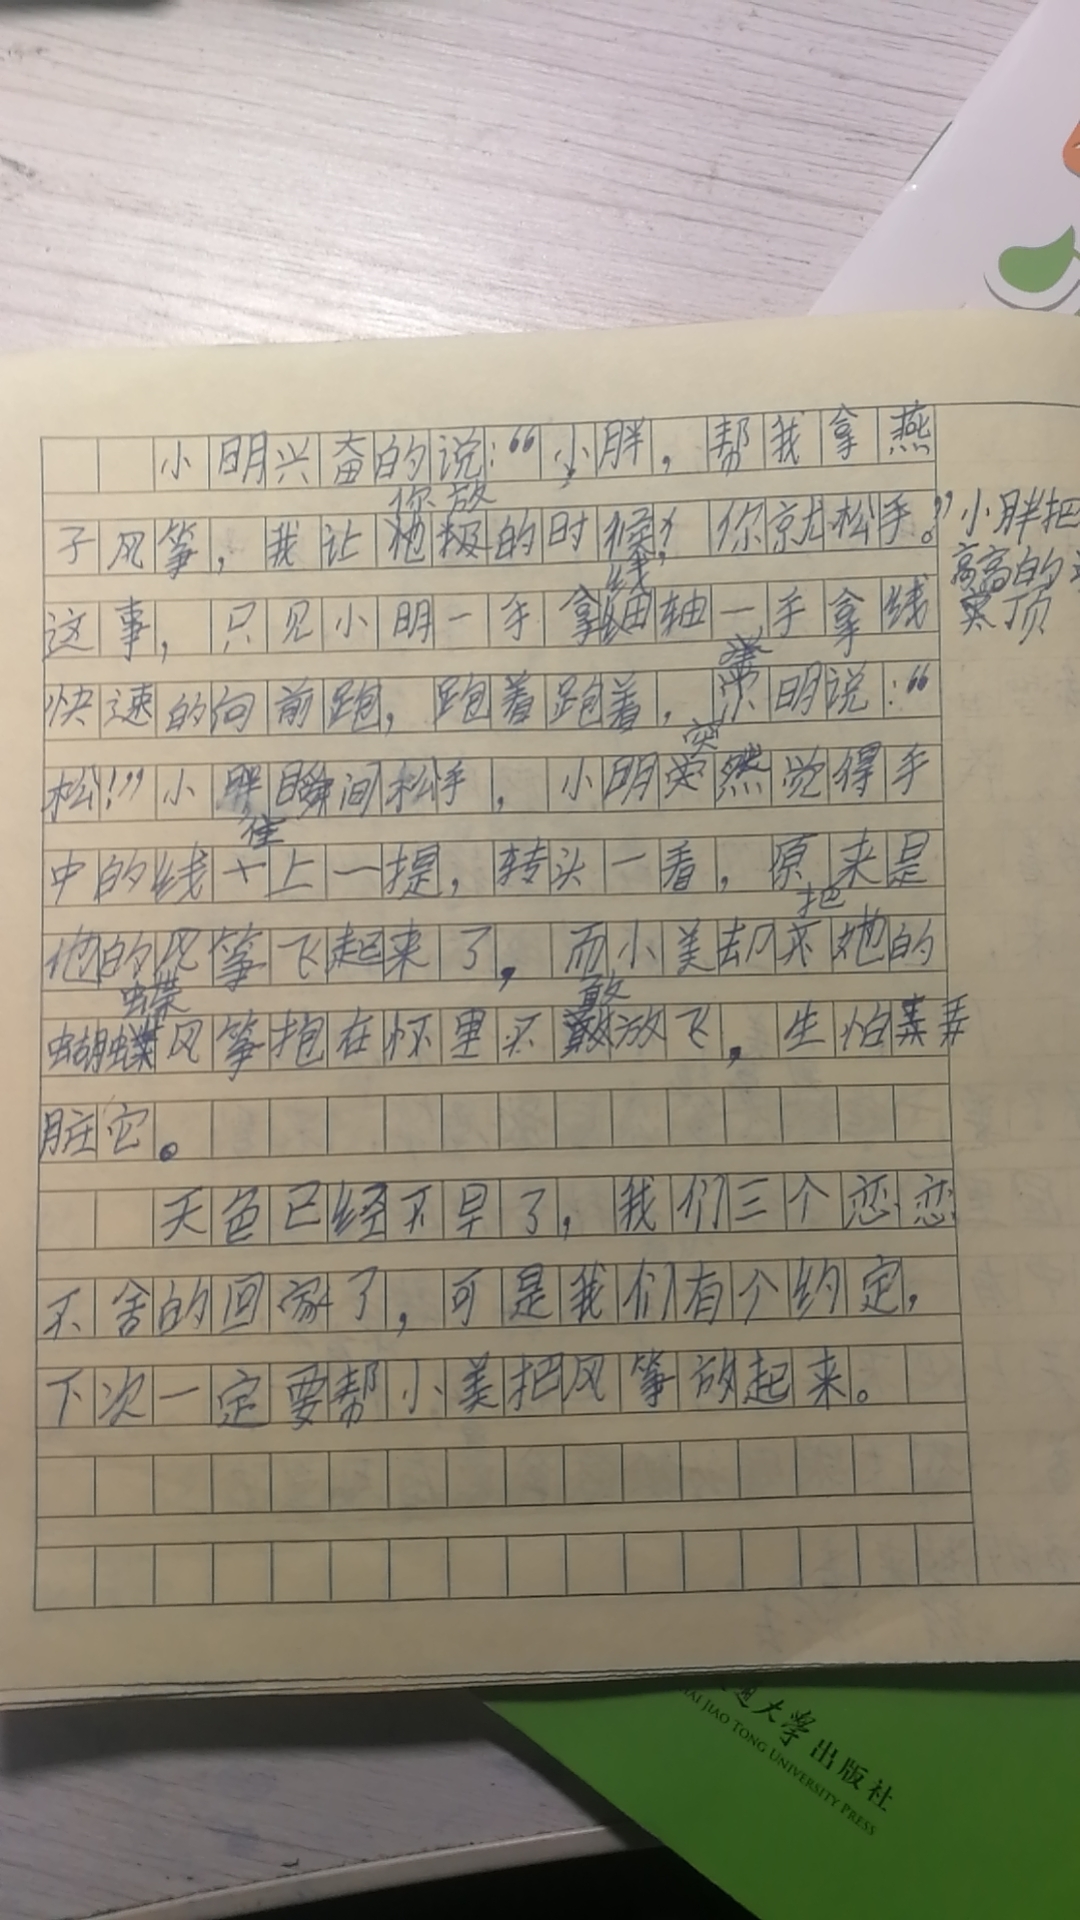 小明兴奋的说:“小胖,帮我拿燕
你放
子风筝,我让他的时候,你就松手。”小胖把
高高的
线
这事,只见小明一手拿轴一手拿线 顶
快速的向前跑,跑着跑着,明说:“
突
松!”小胖瞬间松手,小明突然觉得手
往
中的线上一提,转头一看,原来是
把
他的风筝飞起来了,而小美却不她的
蝶
敢
蝴蝶风筝抱在怀里不敢放飞,生怕弄
脏它。
天色已经不早了,我们三个恋恋
不舍的回家了,可是我们有个约定,
下次一定要帮小美把风筝放起来。
交通大学出版社
HAI JIAO TONG UNIVERSITY PRESS